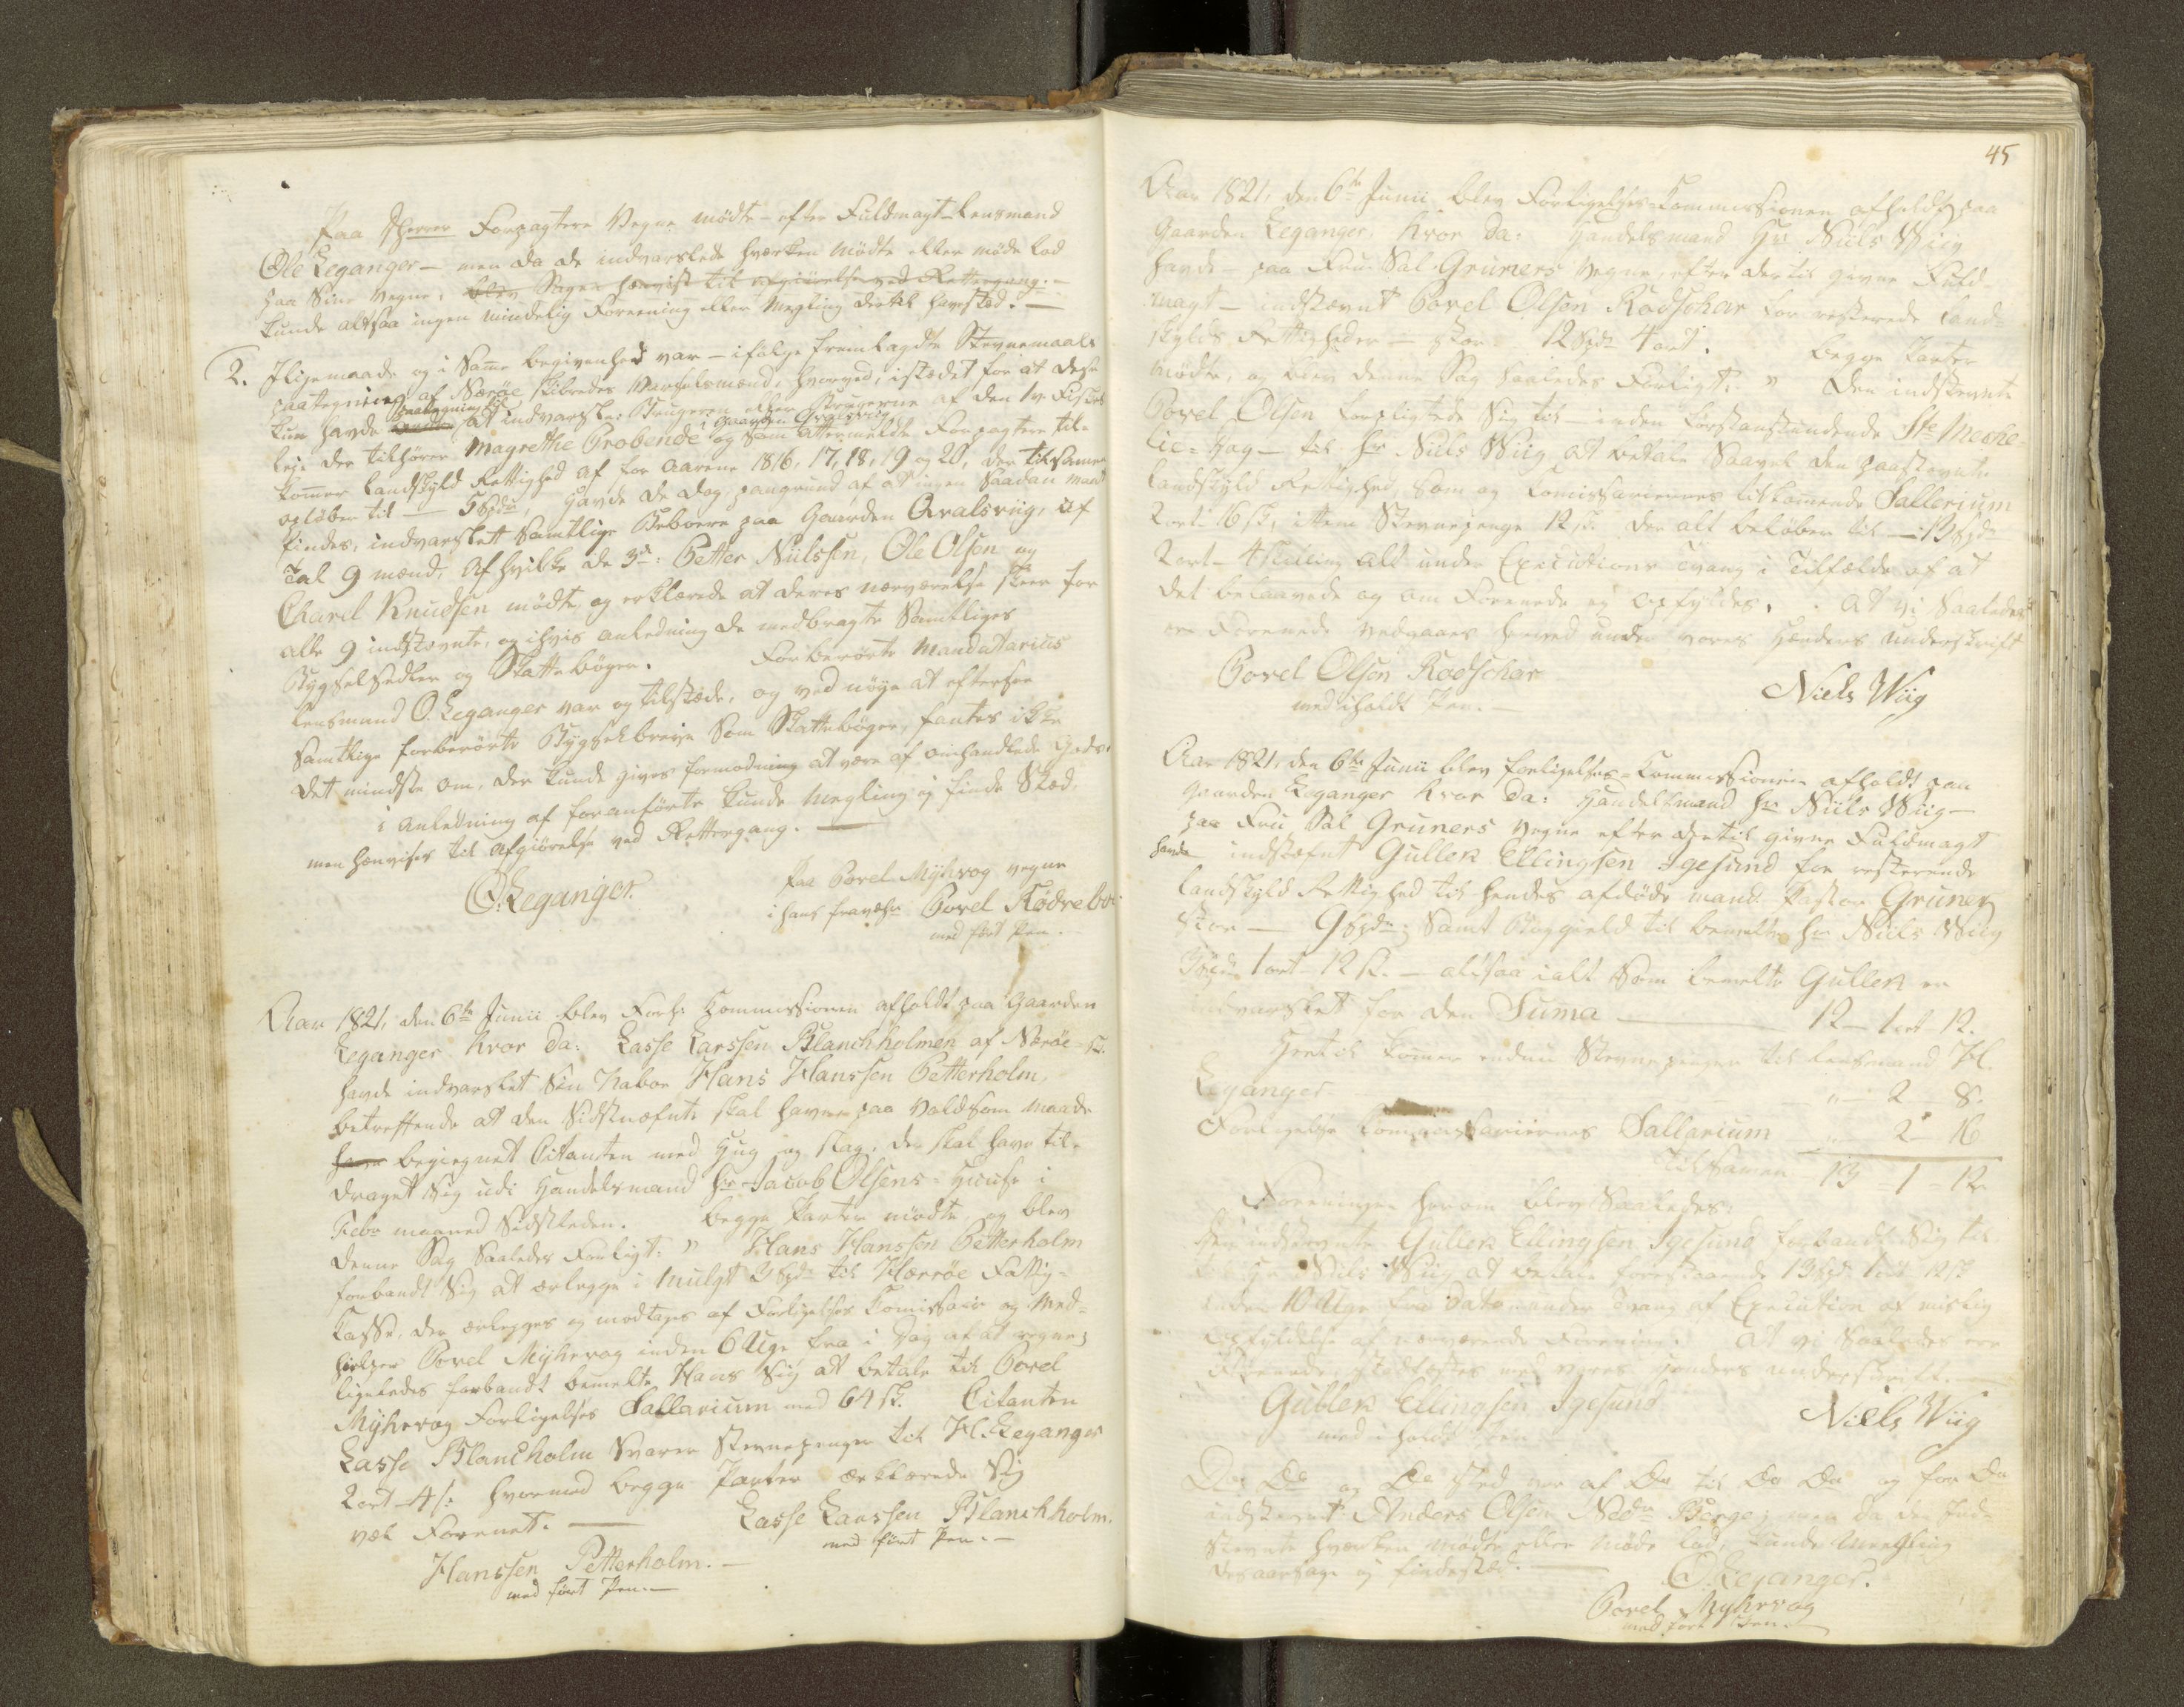 Paa Herrer Forpagtere Vegne mødte efter Fuldmagt Lensmand
Ole Leganger – men da de indvarslede hverken mødte eller møde lod
paa Sine Vegne, blev Sagen henvist til afgiørelse ved Rettergang. –
kunde altsaa ingen mindelig Foreening eller Megling dertil havested. –
2. Iligemaade og i Samme begivenhed var – ifølge fremlagdte Stevnemaals
paategning af Nærøe Skibredes Varselsmænd, hvorved, istædet for at dese
kun havde paategning til at indvarsle: Brugeren eller Brugerne af den
leje der tilhører Magrethe Probende i Gaarden Qvalsviig og Som Forpagtere til-
kommer Landskyld Rettighed af for Aarene 1816, 17, 18, 19 og 20, der tilsamen
opløber til – 5 Spd, Havde de dog, paagrund af at ingen Saadan mand
findes, indvarslet Samtlige Beboere paa Gaarden Qvalsviig, af
Tal 9 mænd, Af hvilke de 3de: Petter Niilsen, Ole Olsen og
Chaarel Knudsen mødte, og erklærede at deres nærværelse skeer for
alle 9 indstevnte, og ihvis anledning de medbragte Samtliges
Bygselsedler og Skattebøger. Forberørte Mandatarius
Lensmand O. Leganger var og tilstæde, og ved nøye at eftersee
Samtlige forberørte Bygselbreve Som Skattebøger, fantes ikke
det mindste om, der kunde gives formodning at være af omhandlede Gods.
i Anledning af foranførte kunde Megling ej finde Stæd,
men henvises til Afgiørelse ved Rettergang. –
O: Leganger. Paa Povel Myhrvog vegne
i hans fravær Povel Rødrebøe
med ført Pen. –
Aar 1821, den 6te Junii blev Forl: Commissionen afholdt paa Gaarden
Leganger hvor da: Lasse Larssen Blanchholmen af Nærøe
havde indvarslet Sin Nabo Hans Hanssen Petterholm,
betreffende at den Sidstnæfnte skal haver paa Voldsom maade
have begiegnet Citanten med Hug og slag, der skal have til-
draget Sig udi Handelsmand Hr Jacob Olsens Huuse i
Febr maaned Sidstleden. Begge Parter mødte, og blev
denne Sag Saaledes Forligt: " Hans Hanssen Petterholm
forbandt Sig at erlegge i Mulgt 3 Spd til Nærrøe Fattig-
Casse, der erlegges og modtages af Forligelses Comissair og Med-
hielper Povel Myhrvog inden 6 Uger fra i Dag af at regne;
ligeledes forbandt bemelte Hans Sig at betale til Povel
Myhrvog Forligelses Sallarium med 64 sk. Citanten
Lasse Blancholm Svarer Stevnepenge til H. Leganger
2 ort – 4 s: hvormed begge Parter erklærede Sig
vel Forenet. – Lasse Larssen Blanchholm.
med ført Pen. –
Hanssen Petterholm. –
med ført Pen. –
45
Aar 1821, den 6te Junii blev Forligelses-Commissionen afholdt paa
Gaarden Leganger, hvor da: Handelsmand Hr Niels Wiig
havde – paa Frue Sal. Gruners Vegne, efter dertil givne Fuld-
magt – indstævnt Povel Olsen Rødschar for resterede Land-
skylds Rettigheder – stor 12 Spd 4 ort. Begge Parter
mødte, og blev denne Sag Saaledes Forligt: " Den indstevnte
Povel Olsen forpligtede Sig til – inden førstanstundende Ste Meche-
lie-Dag – til Hr Niels Wiig at betale Saavel den paastevnte
Landskyld Rettighed, Som og Comissariernes tilkomende Sallerium
2 ort 16 sk, ittem Stevnepenge 12 s. der alt beløber til – 13 Spd
2 ort – 4 skelling Alt under Executions Tvang i Tilfælde af at
det belaavede og om Forenede ej opfyldes. At vi Saaledes
ere Forenede vedgaaes herved under vores Hænders Underskrift
Povel Olsen Rødschar
med iholdt Pen. – Niels Wiig
Aar 1821, den 6te Junii blev forligelses-Commissionen afholdt paa
Gaarden Leganger hvor da: Handelsmand Hr Niels Wiig –
paa Frue Sal Gruners Vegne efter dertil givne Fuldmagt
havde indstæfnt Gullek Ellingsen Igesund for resterende
Landskyld Rettighed til hendes afdøde mand Pastor Gruner
Stor – 9 Spd; Samt Bøggield til bemelte Hr Niels Wiig
3 Spd 1 ort – 12 s. – altsaa ialt Som bemelte Gullek er
indvarslet for den Suma – 12 – 1 ort 12.
Hertil kommer endnu Stevnepenger til Lensmand H.
Leganger – " – 2 – 8.
Forligelse Commissariernes Sallarium – " 2 – 16
tilsamen 13 – 1 – 12
Foreningen herom blev Saaledes:
Den indstevnte Gullek Ellingsen Igesund forbandt Sig til
Hr Niels Wiig at betale forestaaende 13 Spd 1 ort 12 s
inden 10 Uger fra Dato under Tvang af Execution af mislig
Opfyldelse af nærværende Forening. At vi Saaledes ere
Forenede, stadfæstes med vores Hænders underskrift. –
Gullek Ellingsen Igesund
med i holdt Pen Niels Wiig
indstevnt Anders Olsen Nedr Berge, men da den Ind-
stevnte hverken mødte eller møde lod, kunde Megling
desaarsage ej findested. – O. Leganger.
Povel Myhrvog
med ført Pen. –